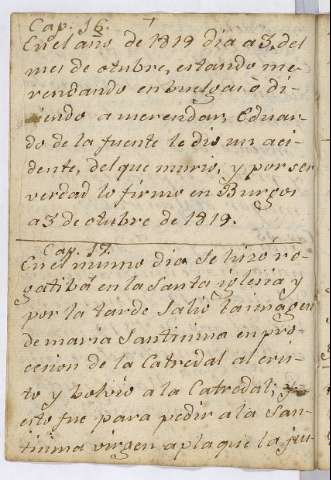 Cap. 16.
En el año de 1819 dia a 3, del
mes de otubre, estando me-
rendando en buelgas o di-
endo a merendar, Eduar-
do de la fuente le dio un aci-
dente, del que murio, y por ser
verdad lo firmo en Burgos
a 3 de otubre de 1819.
Cap. 17.
En el mismo dia se hizo ro-
gatiba en la Santa iglesia y
por la tarde salio la imagen
de maria Santisima en pro-
cesion de la Catredal al cris-
to y bolvio a la Catredal; y
esto fue para pedir a la San-
tisima virgen aplaque la jus-